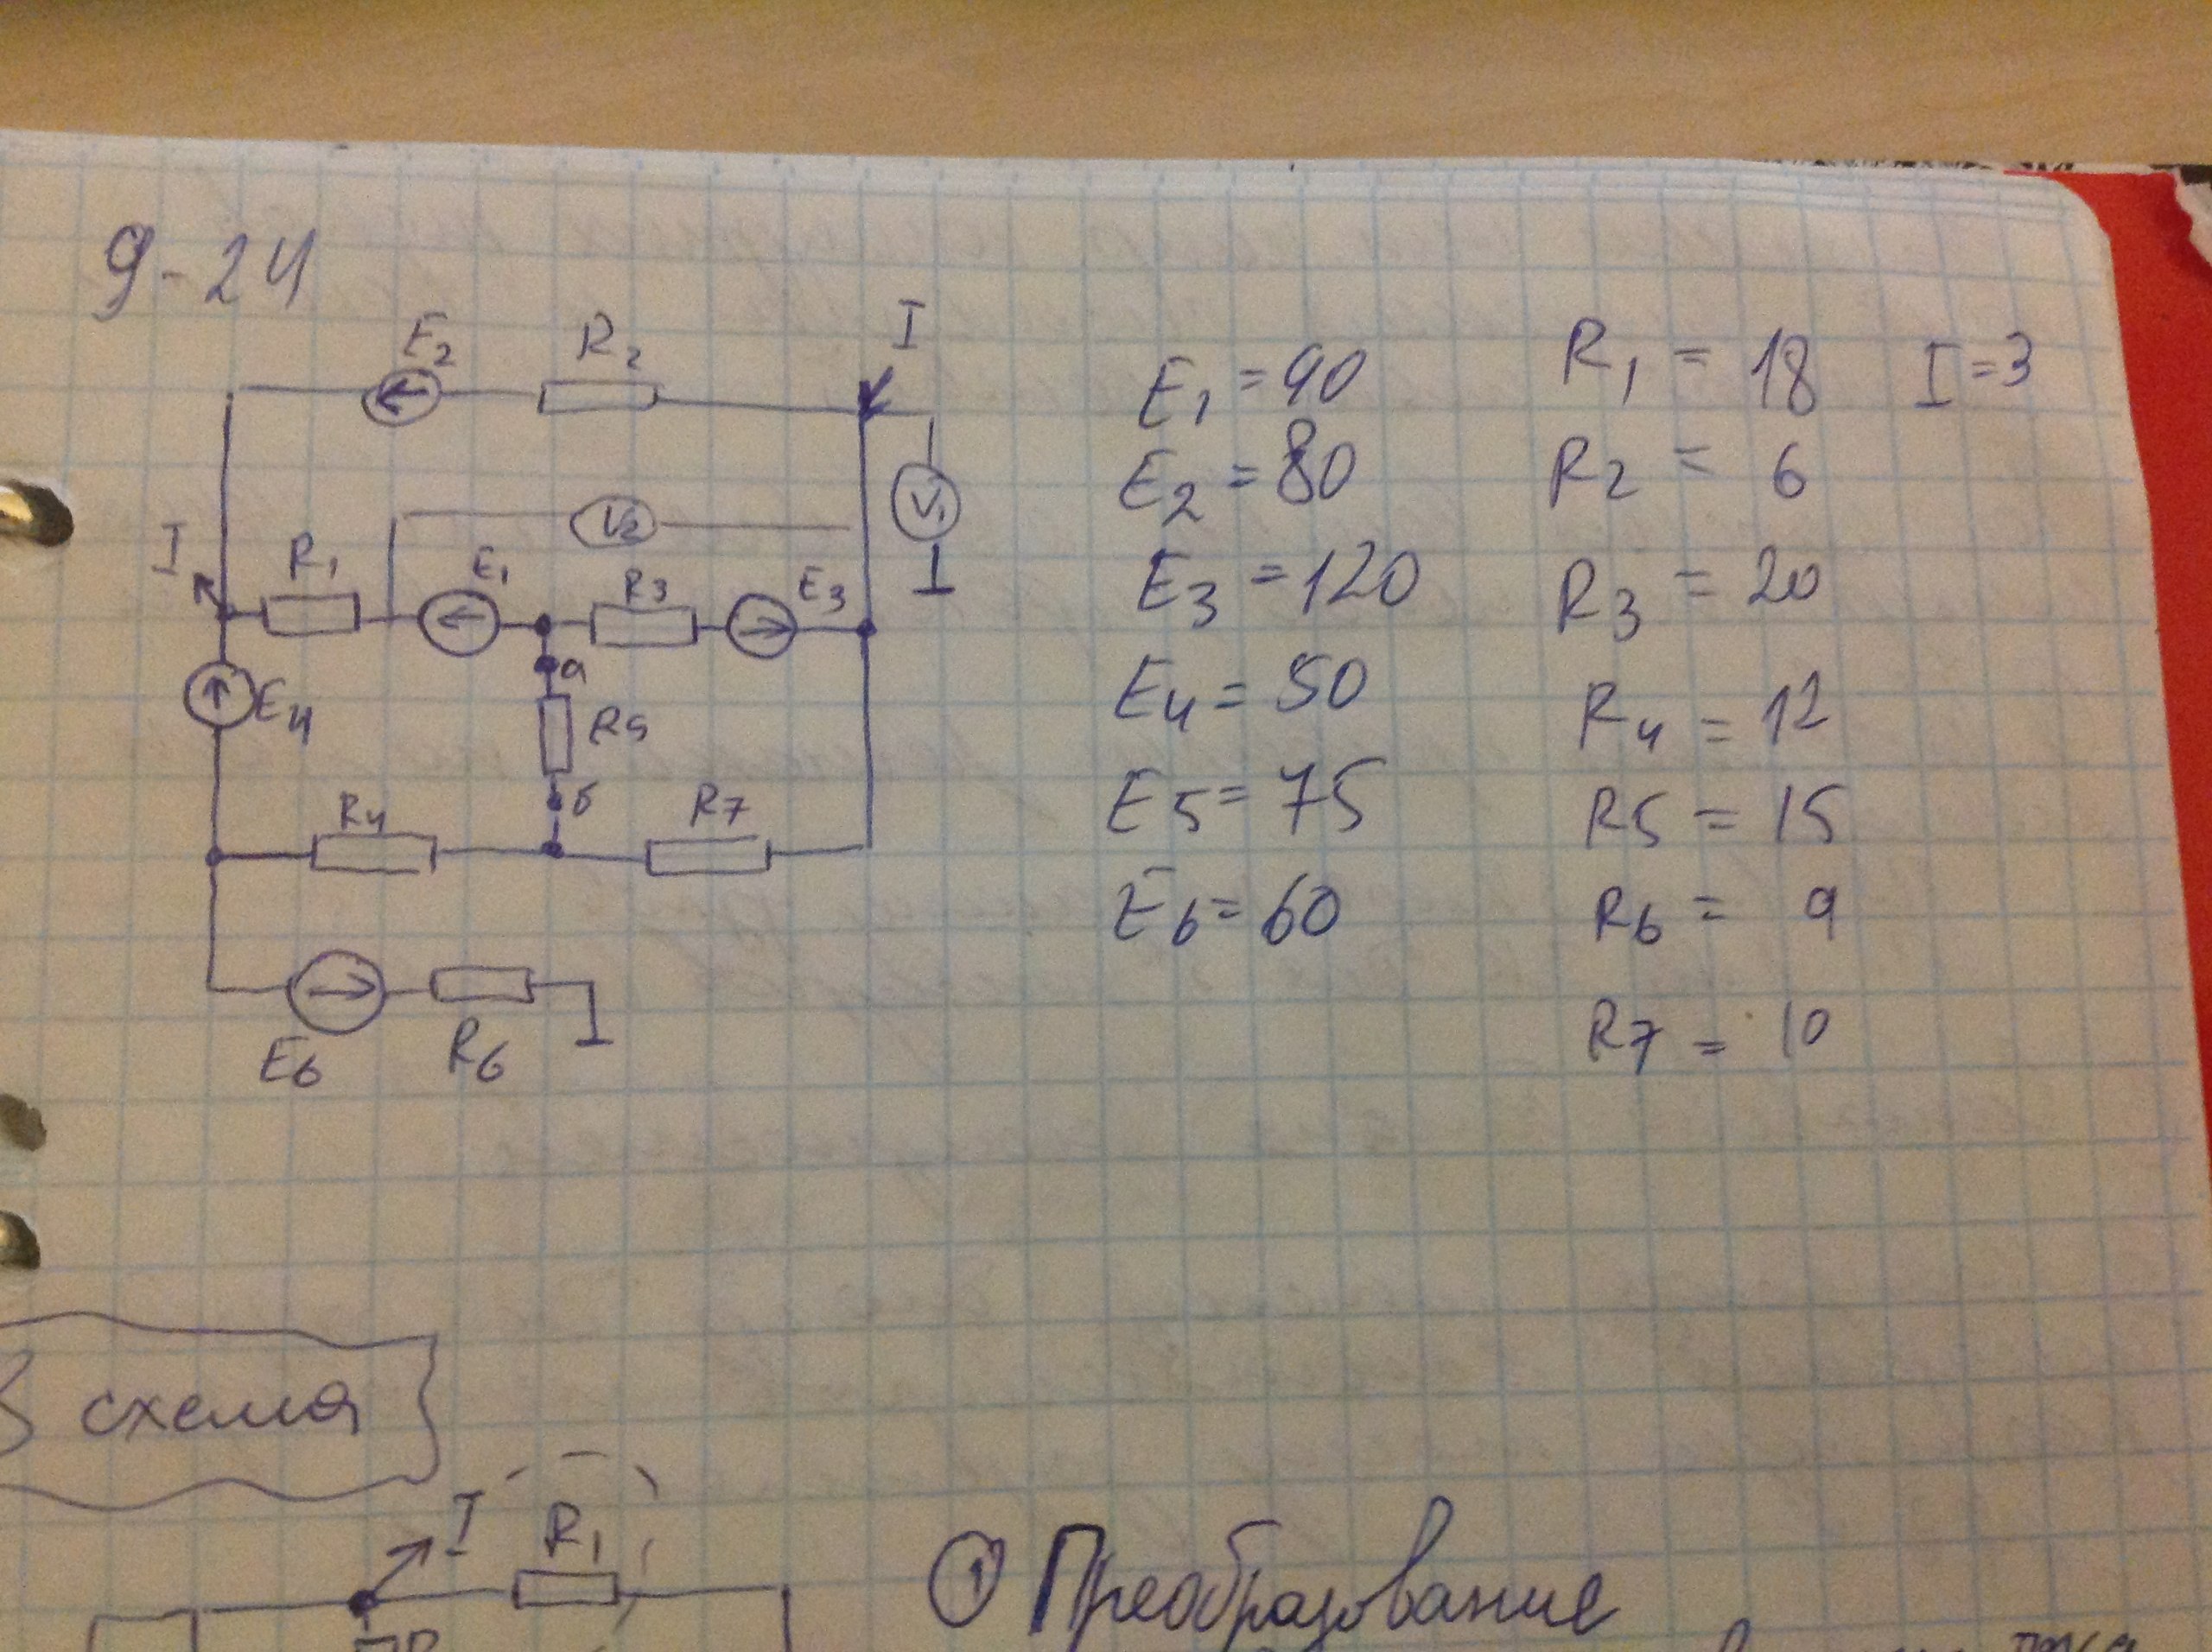 9-24
E2 R2 I
V2 V1
I R1 E1 R3 E3
а
E4 R5
б
R4 R7
E6 R6
E1 = 90
E2 = 80
E3 = 120
E4 = 50
E5 = 75
E6 = 60
R1 = 18 I = 3
R2 = 6
R3 = 20
R4 = 12
R5 = 15
R6 = 9
R7 = 10
схема
I R1
1 Преобразование